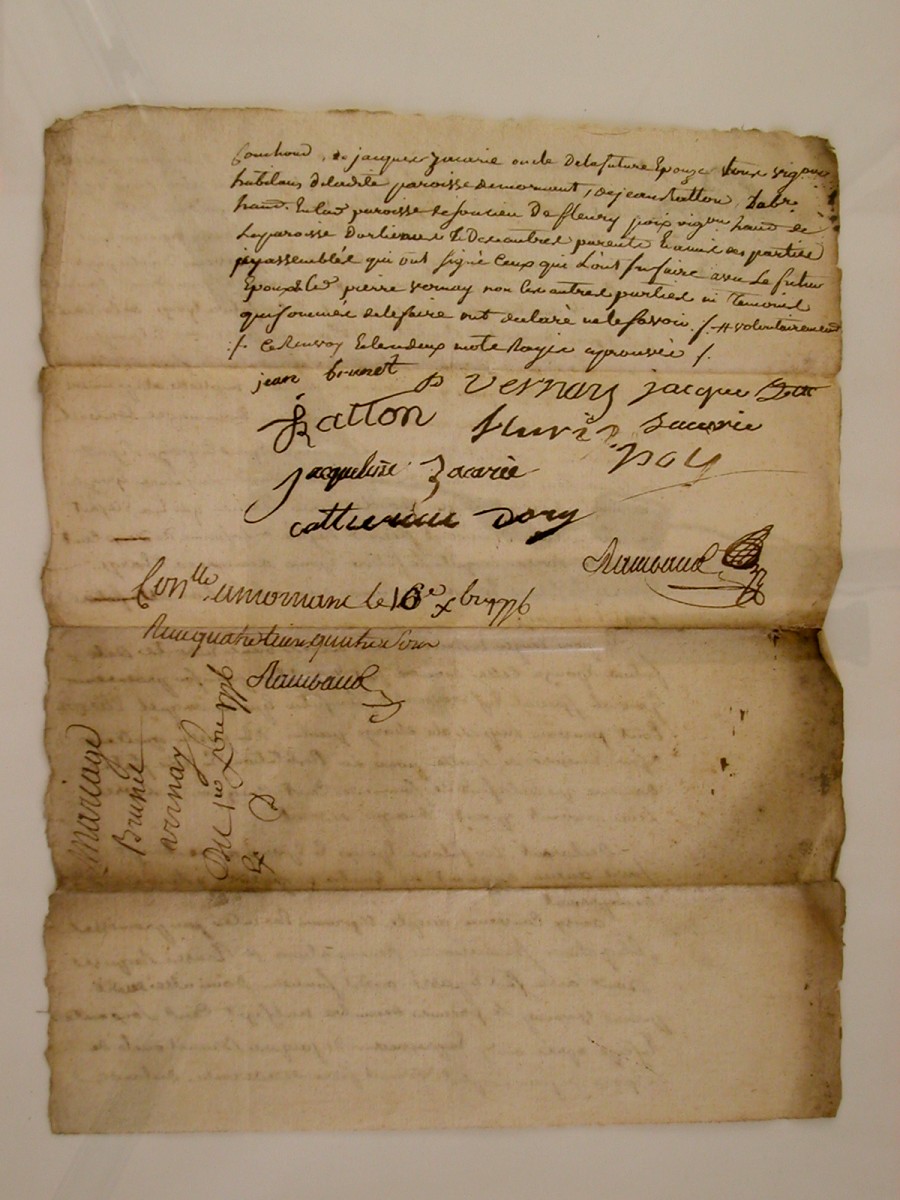 jacques Zacarie oncle de la future Epouse tous vig.ons
habitans de ladite paroisse de mornant, de jean Ratton,
hant. En la paroisse de soucieu De fleury poix vig.on hant de
La paroisse D'orlienas & De autres parents & amis des parties
icy assemblés qui ont signé Ceux qui L'ont su faire avec Le futur
Epoux & le pierre vernay non les autres parties ni temoins
qui sommés de le faire ont declaré ne le savoir ./. # volontairement
./. Ce Renvoy & les deux mots Rayés aprouvés ./.
jean brunet P Vernay jacque
Ratton fleuri Sacarie
poy
jacqueline Zacarie
catherine Dory
Rambaud
Con.lle a mornant le 16e Xbre 1776
Reçu quatre livres quatre sous
Rambaud
Mariage
Brunet
vernay
Du 1re Xbre 1776